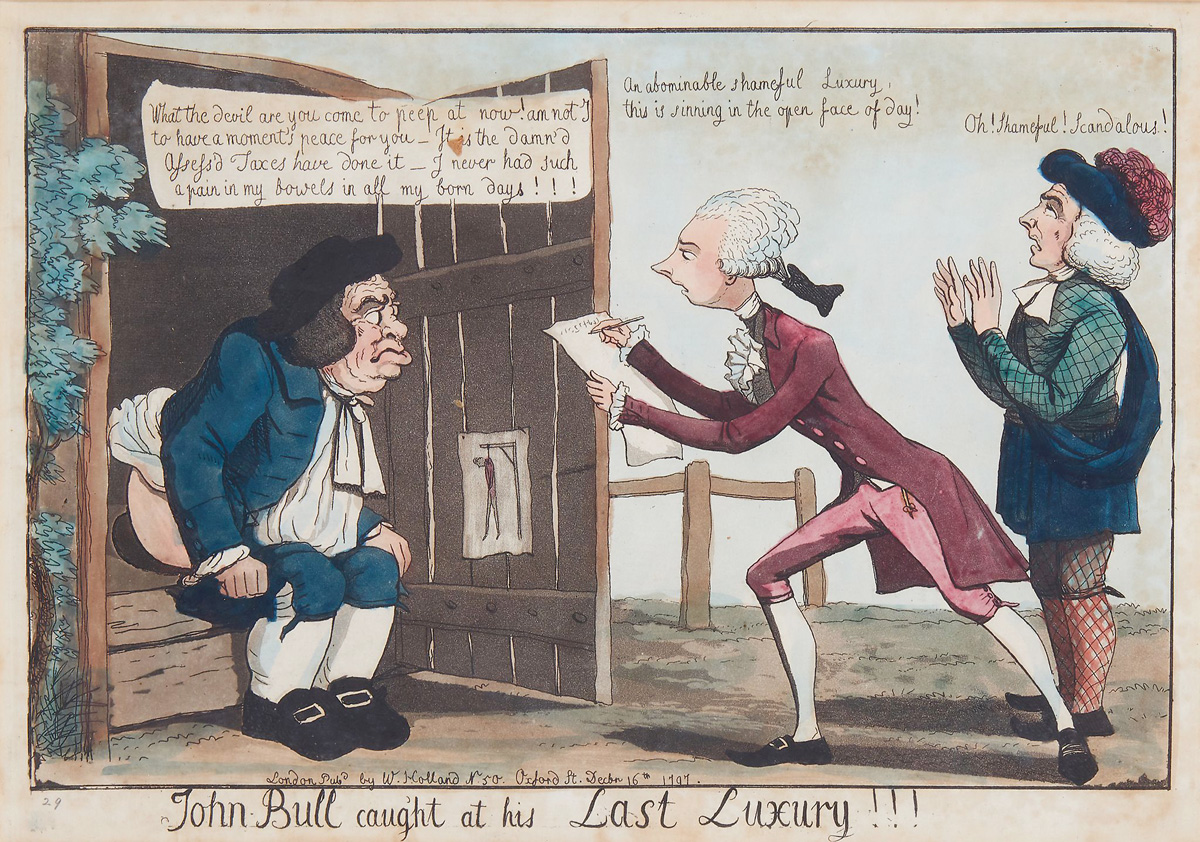 What the devil are you come to peep at now! am not I
to have a moment's peace for you — It is the damn'd
Assess'd Taxes have done it — I never had such
a pain in my bowels in all my born days!!!
An abominable shameful Luxury,
this is sinning in the open face of day!
Oh! Shameful! Scandalous!
London, Pubd by W. Holland No 50. Oxford St. Decbr 16th 1797.
29
John Bull caught at his Last Luxury!!!